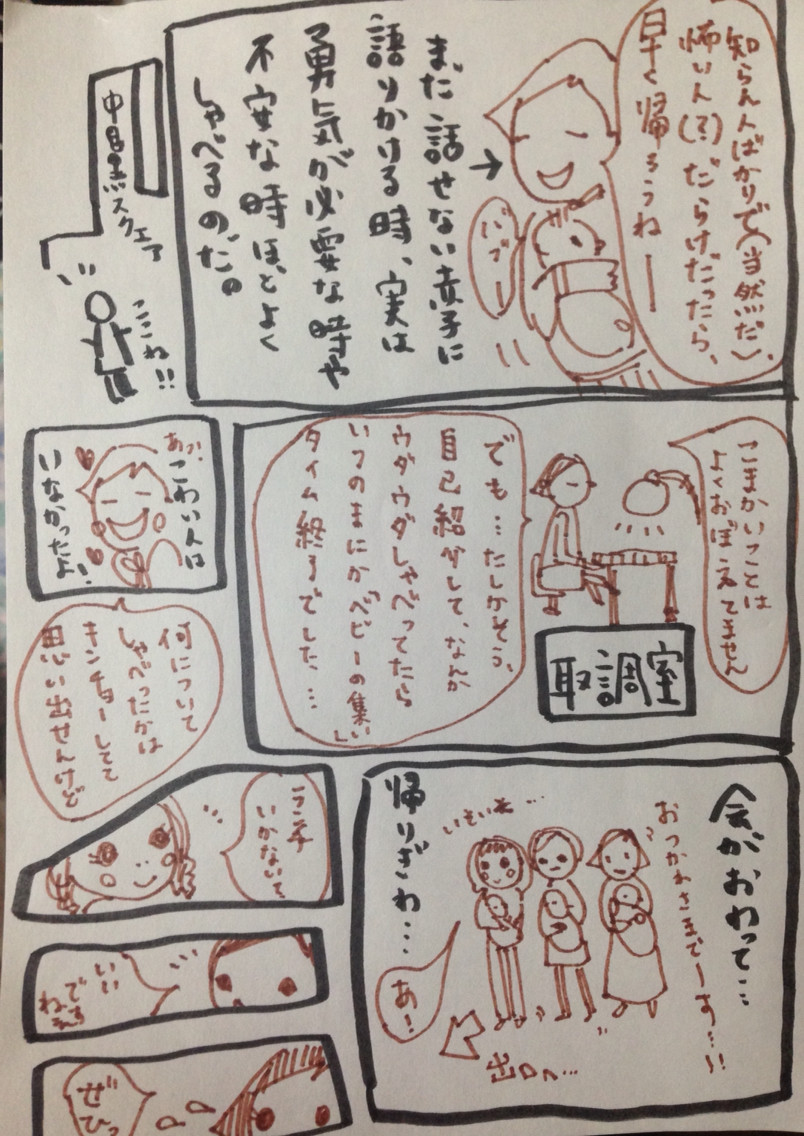 知らん人ばかりで(当然だ)、
怖い人(?)だらけだったら、
早く帰ろうねー
バブー
まだ話せない赤子に
語りかける時、実は
勇気が必要な時や
不安な時ほどよく
しゃべるのだ。
中目黒スクエア
ここね!!
こまかいことは
よくおぼえてません
取調室
でも…たしかそう、
自己紹介して、なんか
ウダウダしゃべってたら
いつのまにか「ベビーの集い」
タイム終了でした…
あっ、こわい人は
いなかったよ!
何について
しゃべったかは
キンチョーしてて
思い出せんけど
会がおわって…
おつかれさまでーす…!!
帰りぎわ…
あー!
出口へ…
ランチ
いかないで
いい
ですねぇ
ぜひっ